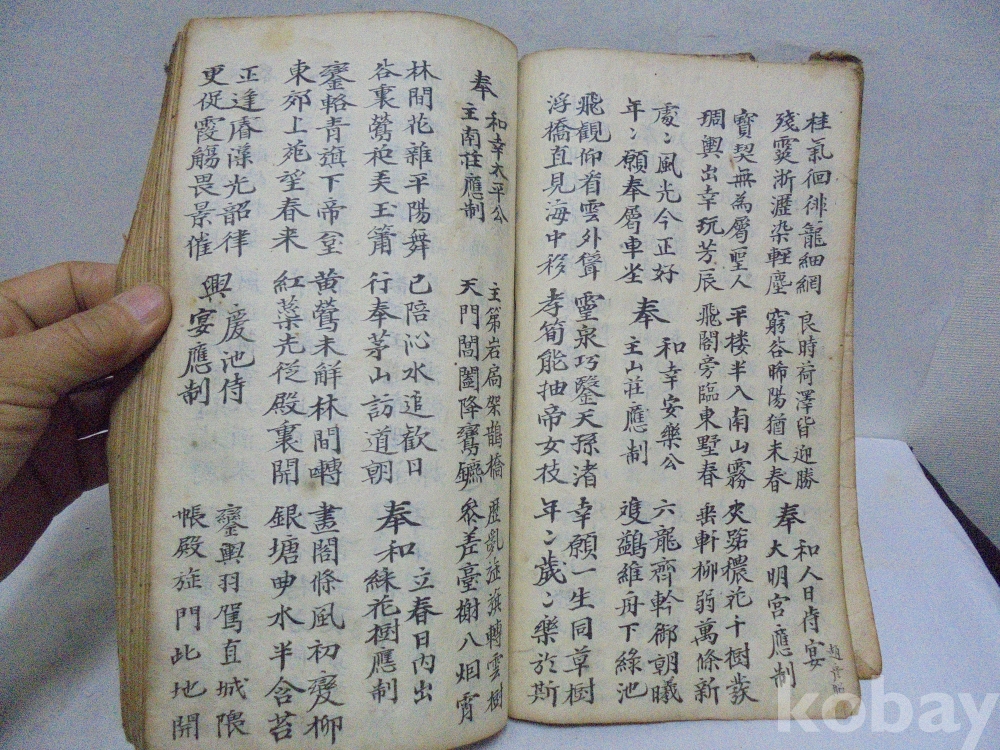 桂氣徊徘龍細網
殘霙淅瀝染輕塵
良時荷澤皆迎勝
窮谷晞陽猶未春
奉和人日侍宴大明宮應制
趙彥昭
寶契無為屬聖人
琱輿出幸玩芳辰
平楼半入南山霧
飛閣旁臨東墅春
夾路穠花千樹發
垂軒柳弱萬條新
處〻風光今正好
年〻願奉屬車坐
奉和幸安樂公主山莊應制
六龍齊軫御朝曦
雙鷁維舟下綠池
飛觀仰看雲外聳
浮橋直見海中移
靈泉巧鑿天孫渚
孝筍能抽帝女枝
幸願一生同草樹
年〻歲〻樂於斯
奉和幸太平公主南莊應制
主第岩扃架鵲橋
天門閶闔降鸞鑣
歷亂旌旗轉雲樹
參差臺榭入烟霄
林間花雜平陽舞
谷裏鶯和弄玉簫
已陪沁水追歡日
行奉茅山訪道朝
奉和立春日內出綵花樹應制
鑾輅青旗下帝臺
東郊上苑望春来
黃鶯未解林間囀
紅蘂先從殿裏開
畫閣條風初變柳
銀塘曲水半含苔
正逢睿藻光韶律
更促霞觴畏景催
興慶池侍宴應制
鑾輿羽駕直城隈
帳殿旌門此地開
kobay